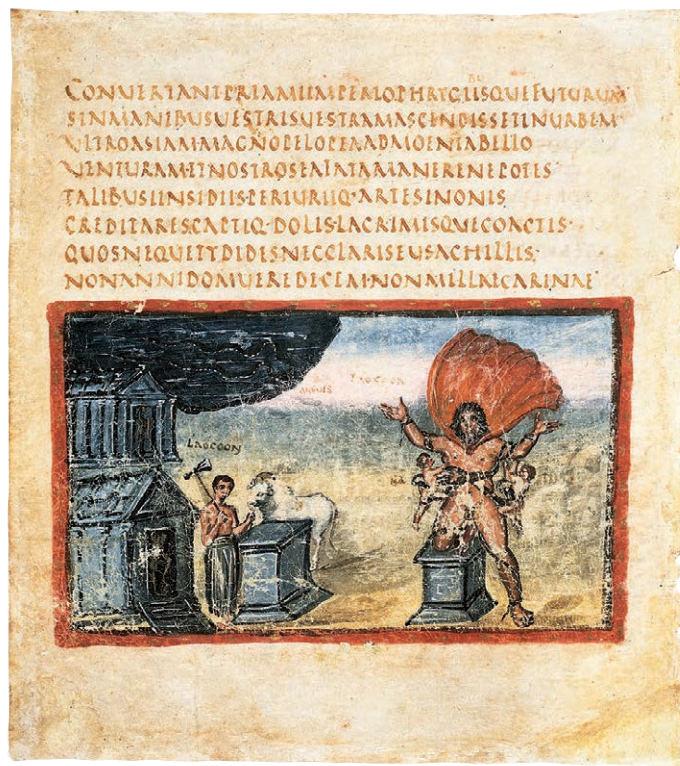 BU
CONUERTANTPRIAMIIMPERIOPHRYGIISQUEFUTURUM
SINMANIBUSUESTRISUESTRAMASCENDISSETINURBEM
ULTROASIAMMAGNOPELOPEAADMOENIABELLO
UENTURAMETNOSTROSEAFATAMANERENEPOTES
TALIBUSINSIDIIS·PERIURIQ·ARTESINONIS
CREDITARESCAPTIQ·DOLISLACRIMISQUECOACTIS·
QUOSNEQUETYDIDESNECLARISEUSACHILLIS·
NONANNIDOMUEREDECEM·NONMILLECARINAE
LAOCOON
LAOCOON